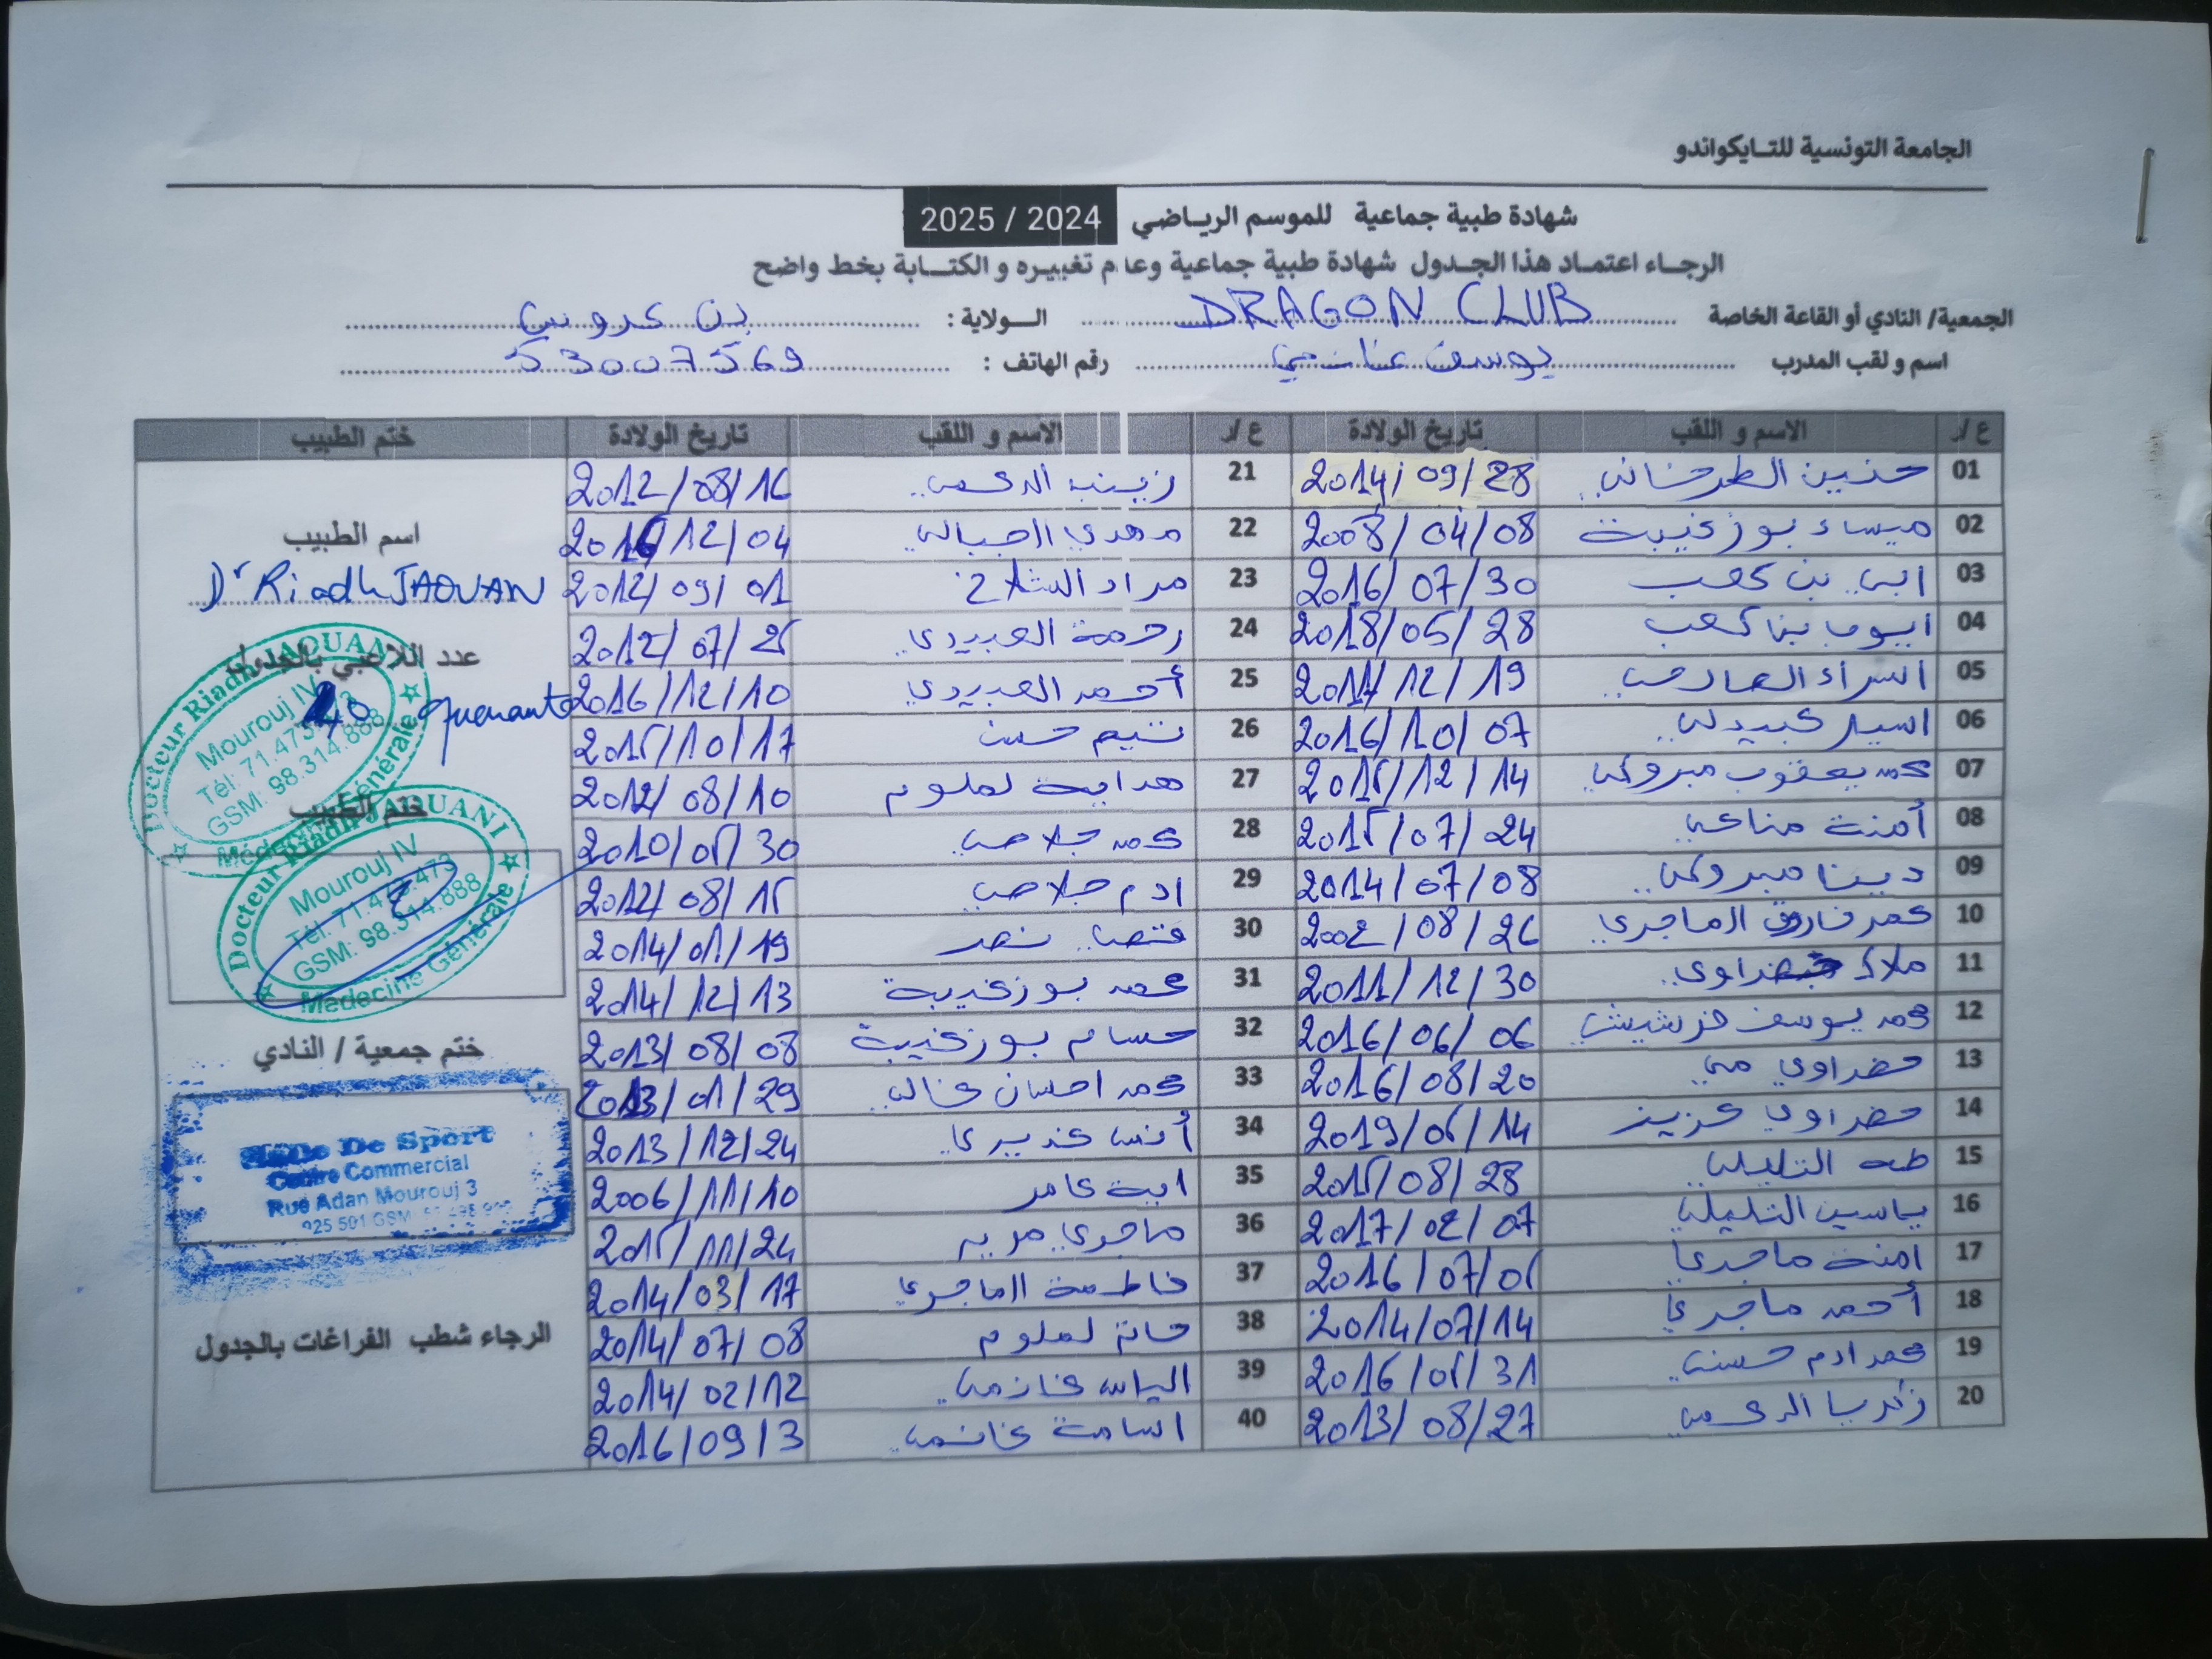 الجامعة التونسية للتايكواندو
شهادة طبية جماعية للموسم الرياضي 2024 / 2025
الرجاء اعتماد هذا الجدول شهادة طبية جماعية وعدم تغييره و الكتابة بخط واضح
الجمعية/ النادي أو القاعة الخاصة DRAGON CLUB الولاية : بن عروس
اسم و لقب المدرب يوسف عناسي رقم الهاتف : 53007569
ع/ر الاسم و اللقب تاريخ الولادة ع/ر الاسم و اللقب تاريخ الولادة ختم الطبيب
01 حنين الطرخاني 2014/09/28 21 زينب الدعمي 2012/08/16
02 ميساء بوزغيبة 2008/04/08 22 مهدي الجبالي 12/04
03 ابي بن كعب 2016/07/30 23 مراد الشلاخ 2012/09/01
04 ايوب بن كعب 2018/05/28 24 رحمة العبيدي 2012/07/25
05 اسراء العارف 2011/12/19 25 أحمد العبيدي 2016/12/10
06 اسيل عبيدلي 2016/10/07 26 تسيم حسن 2015/10/17
07 محمد يعقوب مبروكي 2015/12/14 27 هداية لملوم 2012/08/10
08 أمنة مناعي 2015/07/24 28 محمد جلاصي 2010/05/30
09 دينا مبروكي 2014/07/08 29 ادم جلاصي 2012/08/15
10 عمر فاروق الماجري 2002/08/26 30 نصر 2014/01/19
11 ملاك خضراوي 2011/12/30 31 محمد بوزغيبة 2014/12/13
12 محمد يوسف خرشيش 2016/06/06 32 حسام بوزغيبة 2013/08/08
13 خضراوي مي 2016/08/20 33 محمد احسان غالي 2013/01/29
14 خضراوي عزيز 2019/05/14 34 أنس غديري 2013/12/24
15 طه التليلي 2015/08/28 35 اية عامر 2006/11/10
16 ياسين التليلي 2017/02/07 36 ماجري مريم 2015/11/24
17 امنة ماجري 2016/07/05 37 فاطمة الماجري 2014/03/17
18 أحمد ماجري 2014/07/14 38 حاتم لملوم 2014/07/08
19 محمد ادم حسني 2016/05/31 39 الياس غانمي 2014/02/12
20 زكريا الدعمي 2013/08/27 40 اسامة غانمي 2016/09/3
اسم الطبيب
Dr Riadh JAOUAN
عدد اللاعبي بالجدول
40 quarante
Docteur Riadh JAOUANI
Mourouj IV
Tél: 71.473.473
GSM: 98.314.888
Médecine Générale
ختم الطبيب
Docteur Riadh JAOUANI
Mourouj IV
Tél: 71.473.473
GSM: 98.314.888
Médecine Générale
ختم جمعية / النادي
Salle De Sport
Centre Commercial
Rue Adan Mourouj 3
الرجاء شطب الفراغات بالجدول